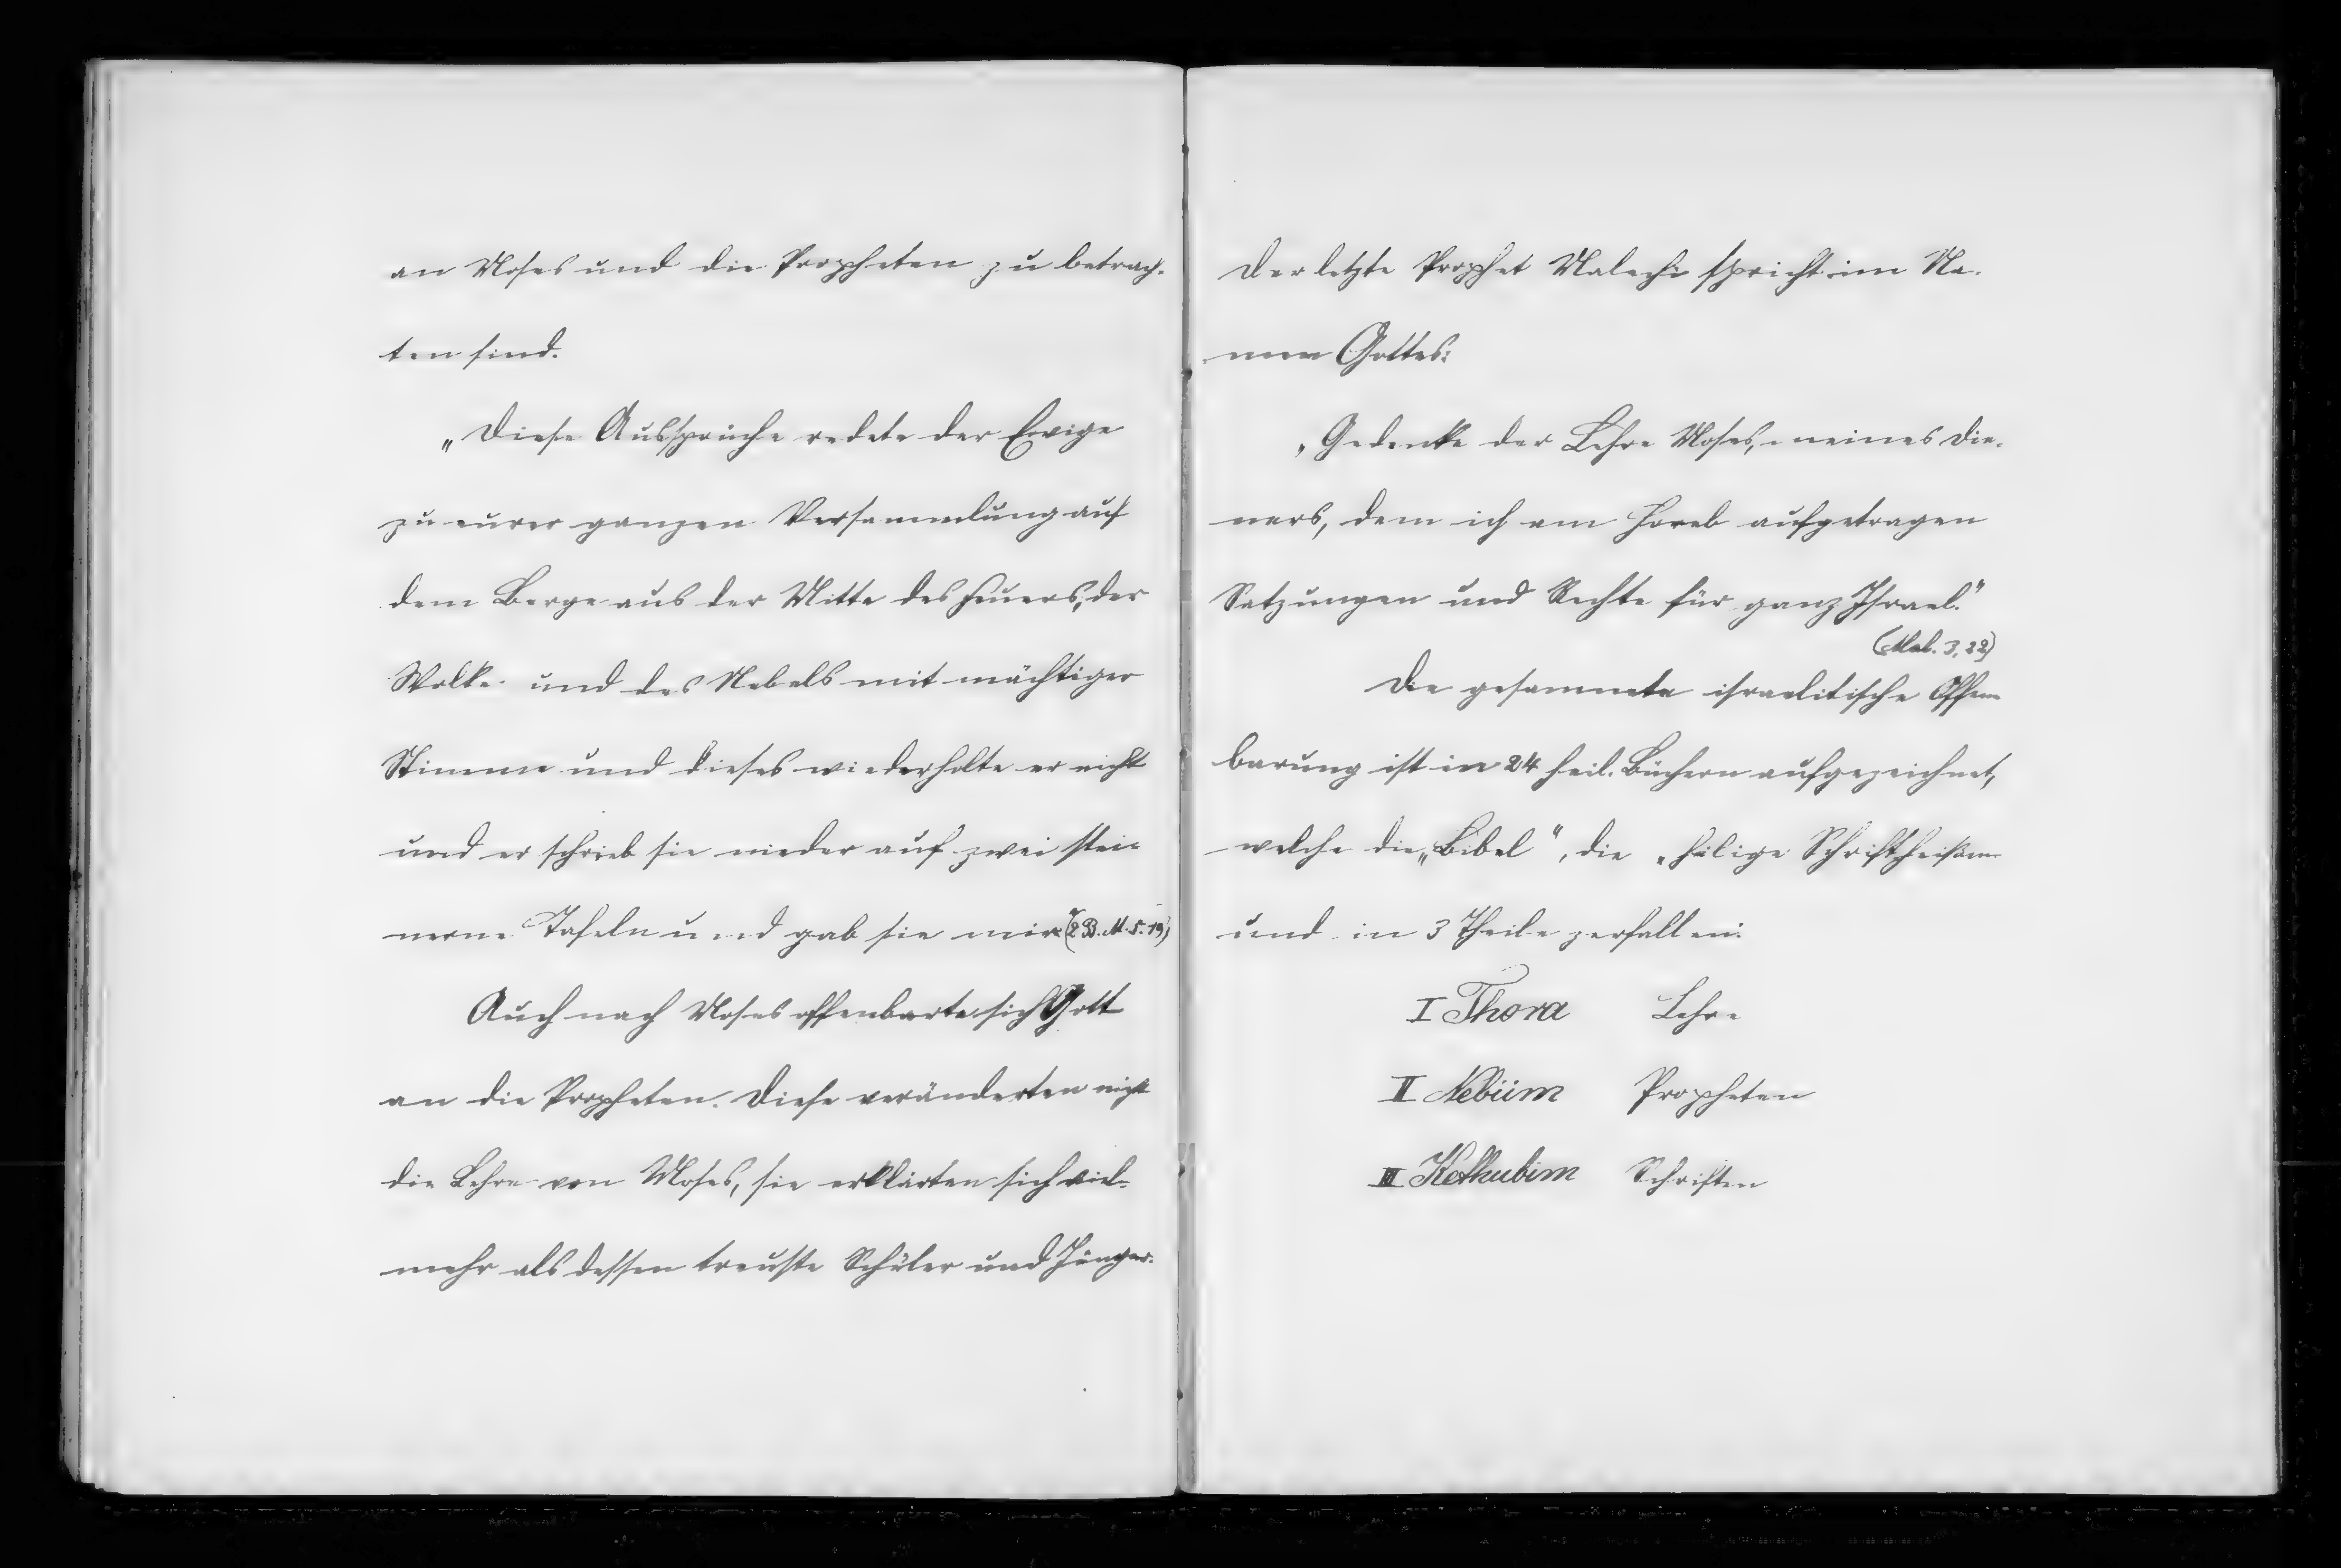 an Moses und die Propheten zu betrach-
ten sind.
„Diese Aussprüche redete der Ewige
zu eurer ganzen Versammlung auf
dem Berge aus der Mitte des Feuers, der
Wolke und des Nebels mit mächtiger
Stimme und dieses wiederholte er nicht
und er schrieb sie nieder auf zwei stei-
nerne Tafeln und gab sie mir." (2 B. M. 5. 19)
Auch nach Moses offenbarte sich Gott
an die Propheten. Diese veränderten nicht
die Lehre von Moses, sie erklärten sich viel-
mehr als dessen treuste Schüler und Jünger.
Der letzte Prophet Malechi spricht im Na-
men Gottes:
„Gedenke der Lehre Moses, meines Die-
ners, dem ich am Horeb aufgetragen
Satzungen und Rechte für ganz Israel."
(Mal. 3, 22)
Die gesammte israelitische Offen-
barung ist in 24 heil. Büchern aufgezeichnet,
welche die „Bibel", die „heilige Schrift heißen
und in 3 Theile zerfallen:
I Thora Lehre
II Nebiim Propheten
III Kethubim Schriften